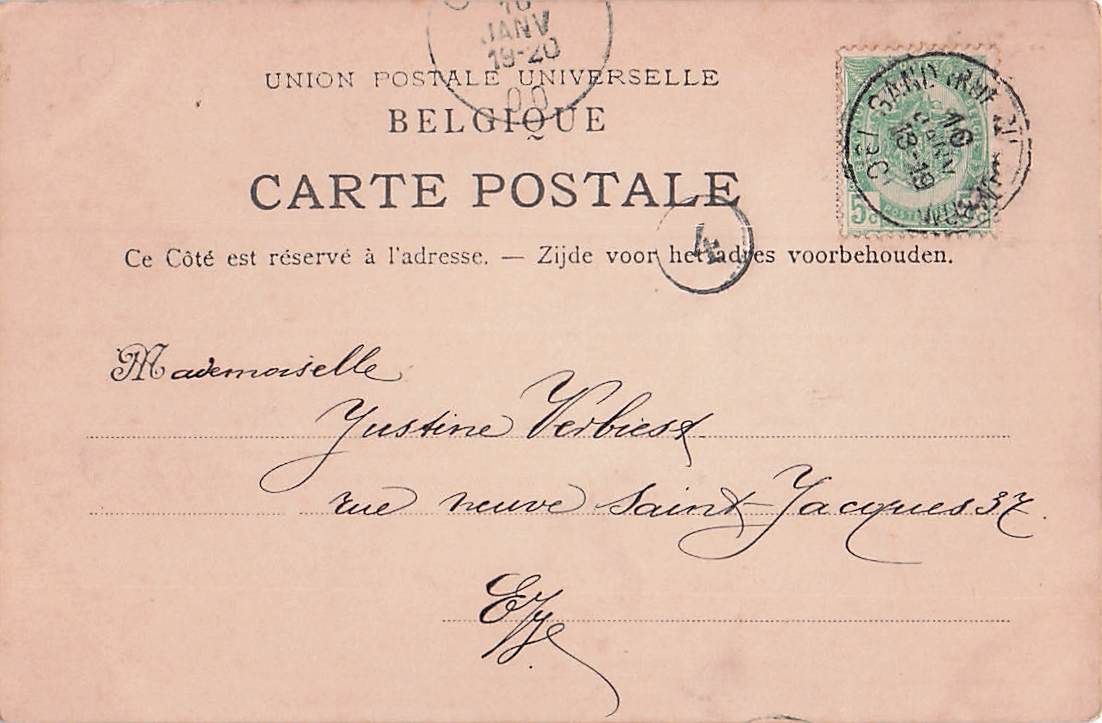 10
JANV
19-20
00
UNION POSTALE UNIVERSELLE
BELGIQUE
CARTE POSTALE
10
JANV
18-19
5
POST
4
Ce Côté est réservé à l'adresse. — Zijde voor het adres voorbehouden.
Mademoiselle
Justine Verbiest
rue neuve Saint-Jacques 37.
E/V